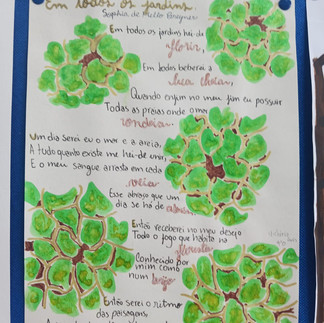 Em todos os jardins
Sophia de Mello Breyner
Em todos os jardins hei-de
florir,
Em todos beberei a
lua cheia,
Quando enfim no meu fim eu possuir
Todas as praias onde o mar
ondeia.
Um dia serei eu o mar e a areia,
A tudo quanto existe me hei-de unir,
E o meu sangue arrasta em cada
veia
Esse abraço que um
dia se há-de abrir.
Então receberei no meu desejo
Todo o fogo que habita na
floresta
Conhecido por
mim como
num beijo.
Então serei o ritmo
das paisagens,